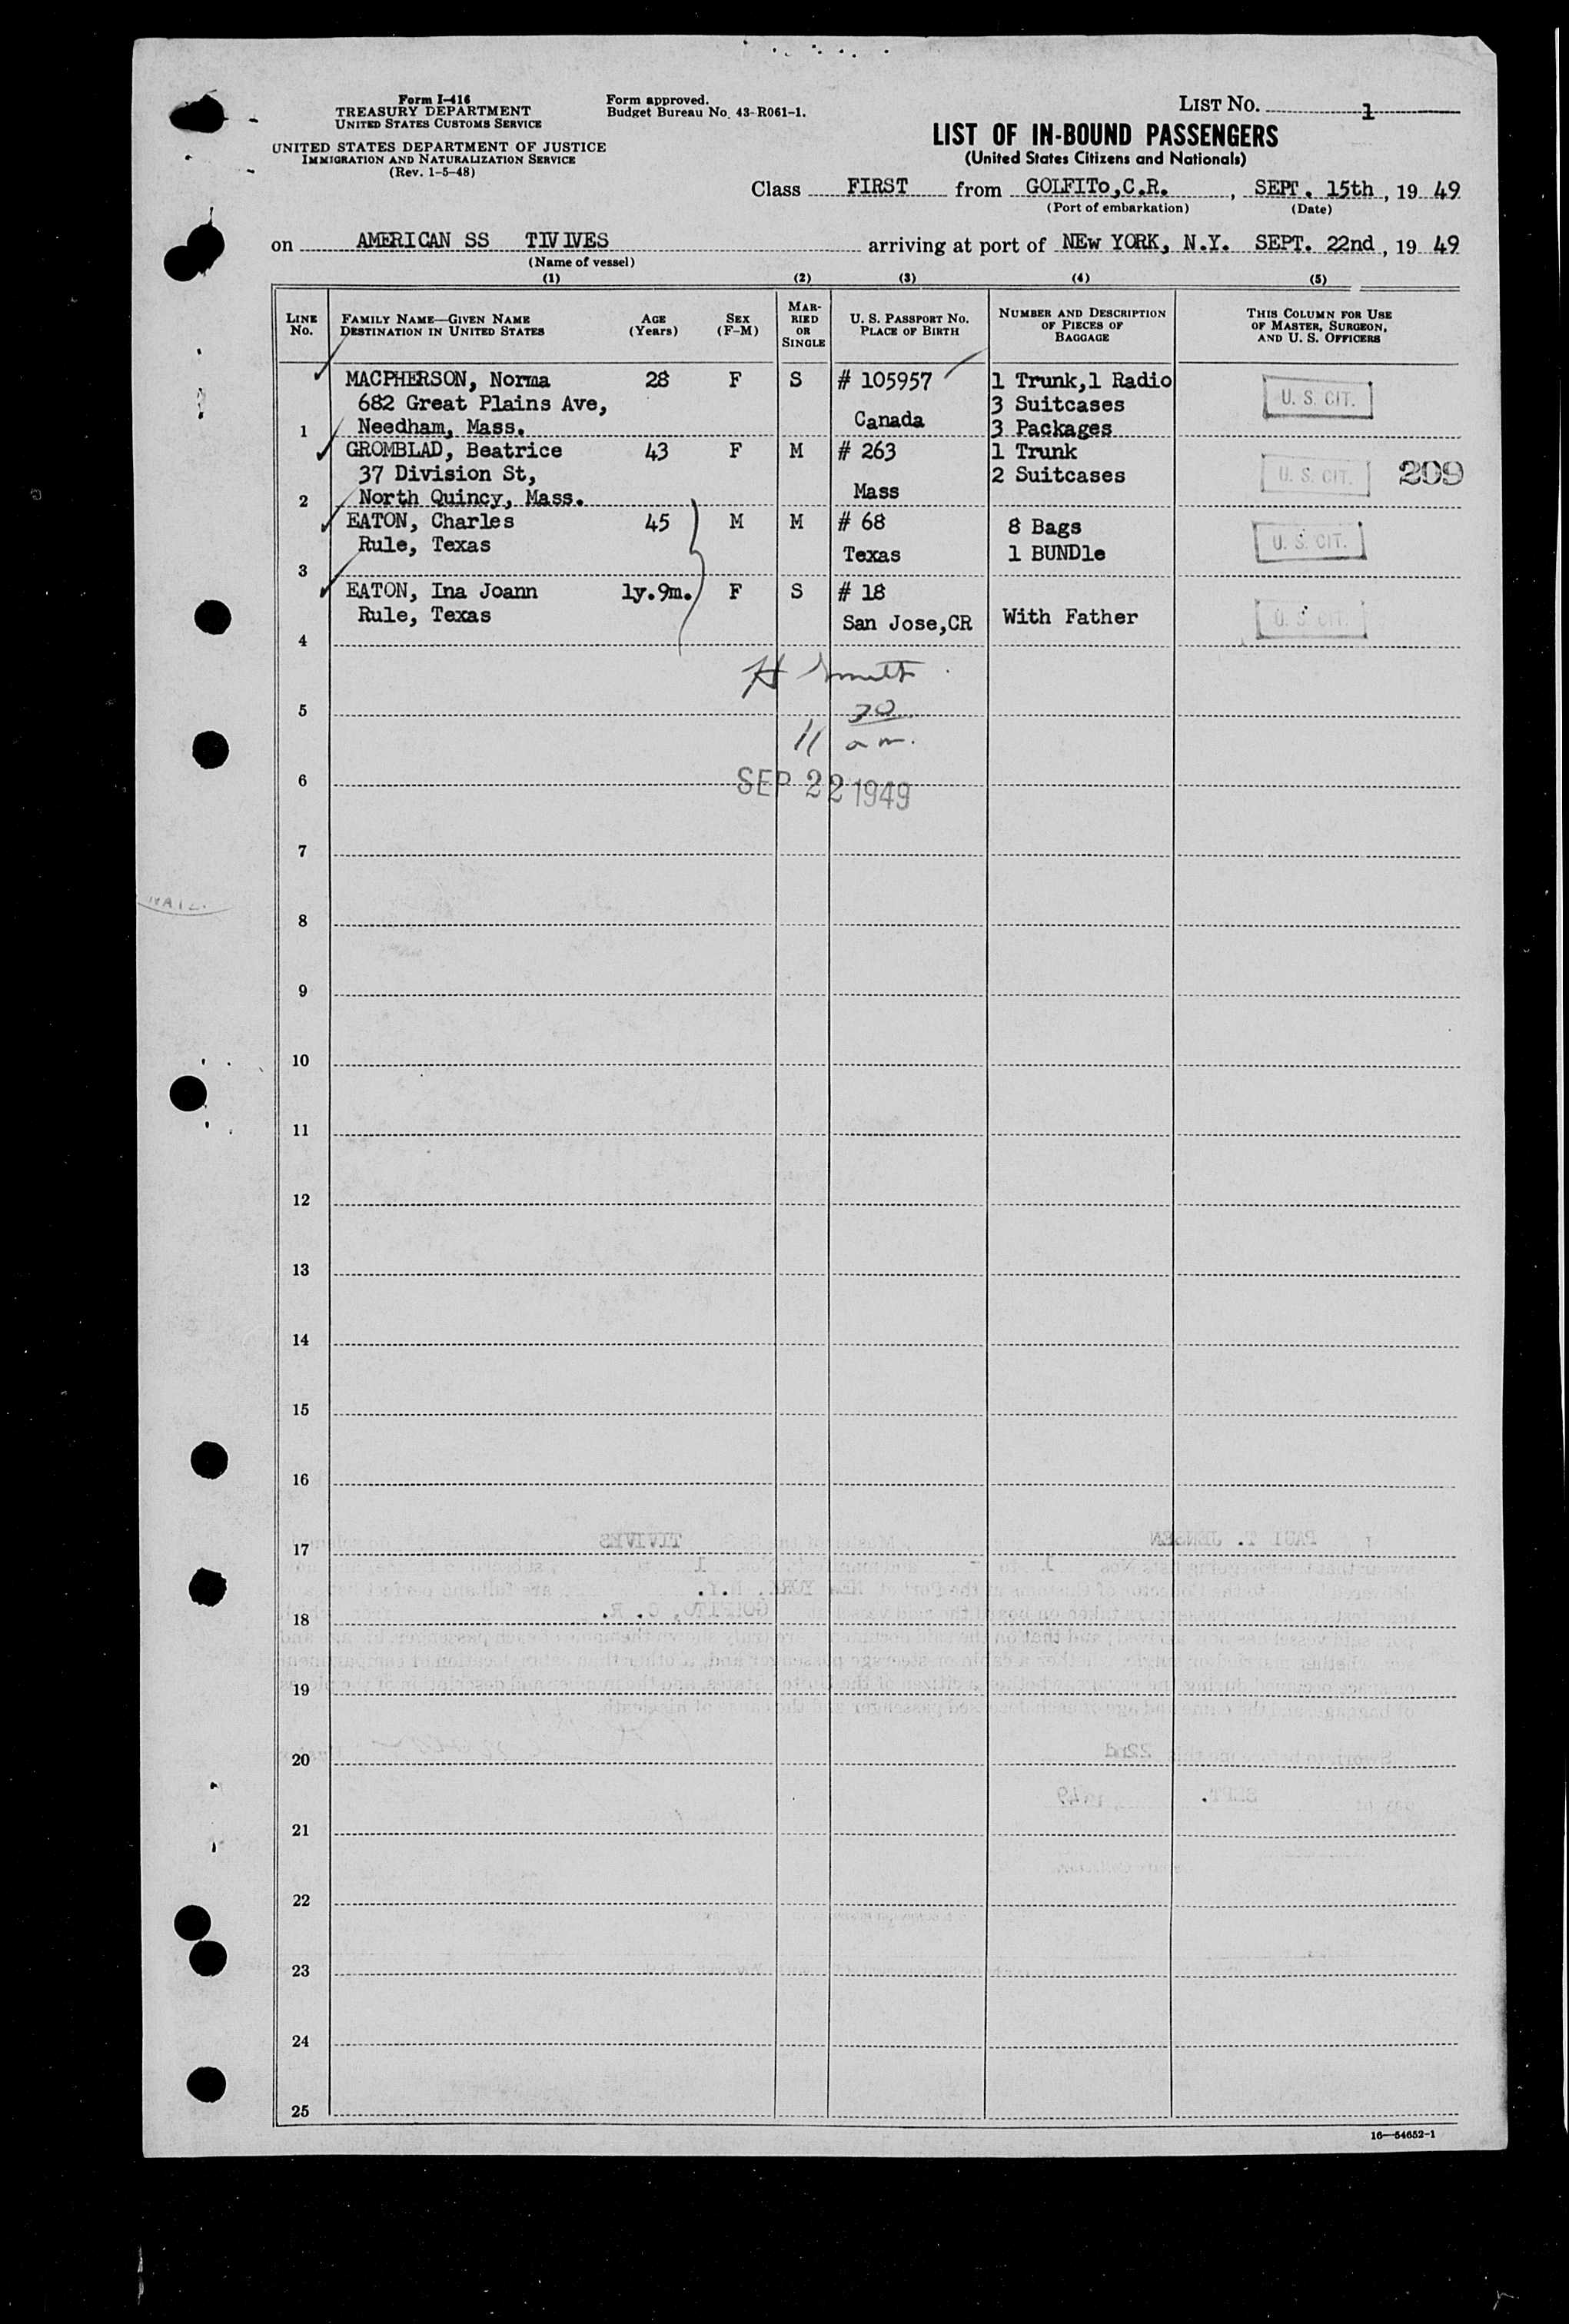 Form I-416
TREASURY DEPARTMENT
UNITED STATES CUSTOMS SERVICE
UNITED STATES DEPARTMENT OF JUSTICE
IMMIGRATION AND NATURALIZATION SERVICE
(Rev. 1-5-48)
Form approved.
Budget Bureau No. 43-R061-1.
LIST NO. 1
LIST OF IN-BOUND PASSENGERS
(United States Citizens and Nationals)
Class FIRST from GOLFITo,C.R., SEPT. 15th, 19 49
(Port of embarkation) (Date)
on AMERICAN SS TIVIVES arriving at port of NEw YORK, N.Y. SEPT. 22nd, 19 49
(Name of vessel)
(1) (2) (3) (4) (5)
LINE No. FAMILY NAME—GIVEN NAME DESTINATION IN UNITED STATES AGE (Years) SEX (F-M) MARRIED OR SINGLE U. S. PASSPORT NO. PLACE OF BIRTH NUMBER AND DESCRIPTION OF PIECES OF BAGGAGE THIS COLUMN FOR USE OF MASTER, SURGEON, AND U. S. OFFICERS
MACPHERSON, Norma 28 F S # 105957 1 Trunk,1 Radio U. S. CIT.
682 Great Plains Ave, 3 Suitcases
1 Needham, Mass. Canada 3 Packages
GROMBLAD, Beatrice 43 F M # 263 1 Trunk
37 Division St, 2 Suitcases U. S. CIT. 209
2 North Quincy, Mass. Mass
EATON, Charles 45 M M # 68 8 Bags U. S. CIT.
Rule, Texas Texas 1 BUNDle
3
EATON, Ina Joann 1y.9m. F S # 18
Rule, Texas San Jose,CR With Father U. S. CIT.
4
H Smith
5 30
11 a m.
6 SEP 22 1949
7
8
9
10
11
12
13
14
15
16
17
18
19
20
21
22
23
24
25
16—54652-1